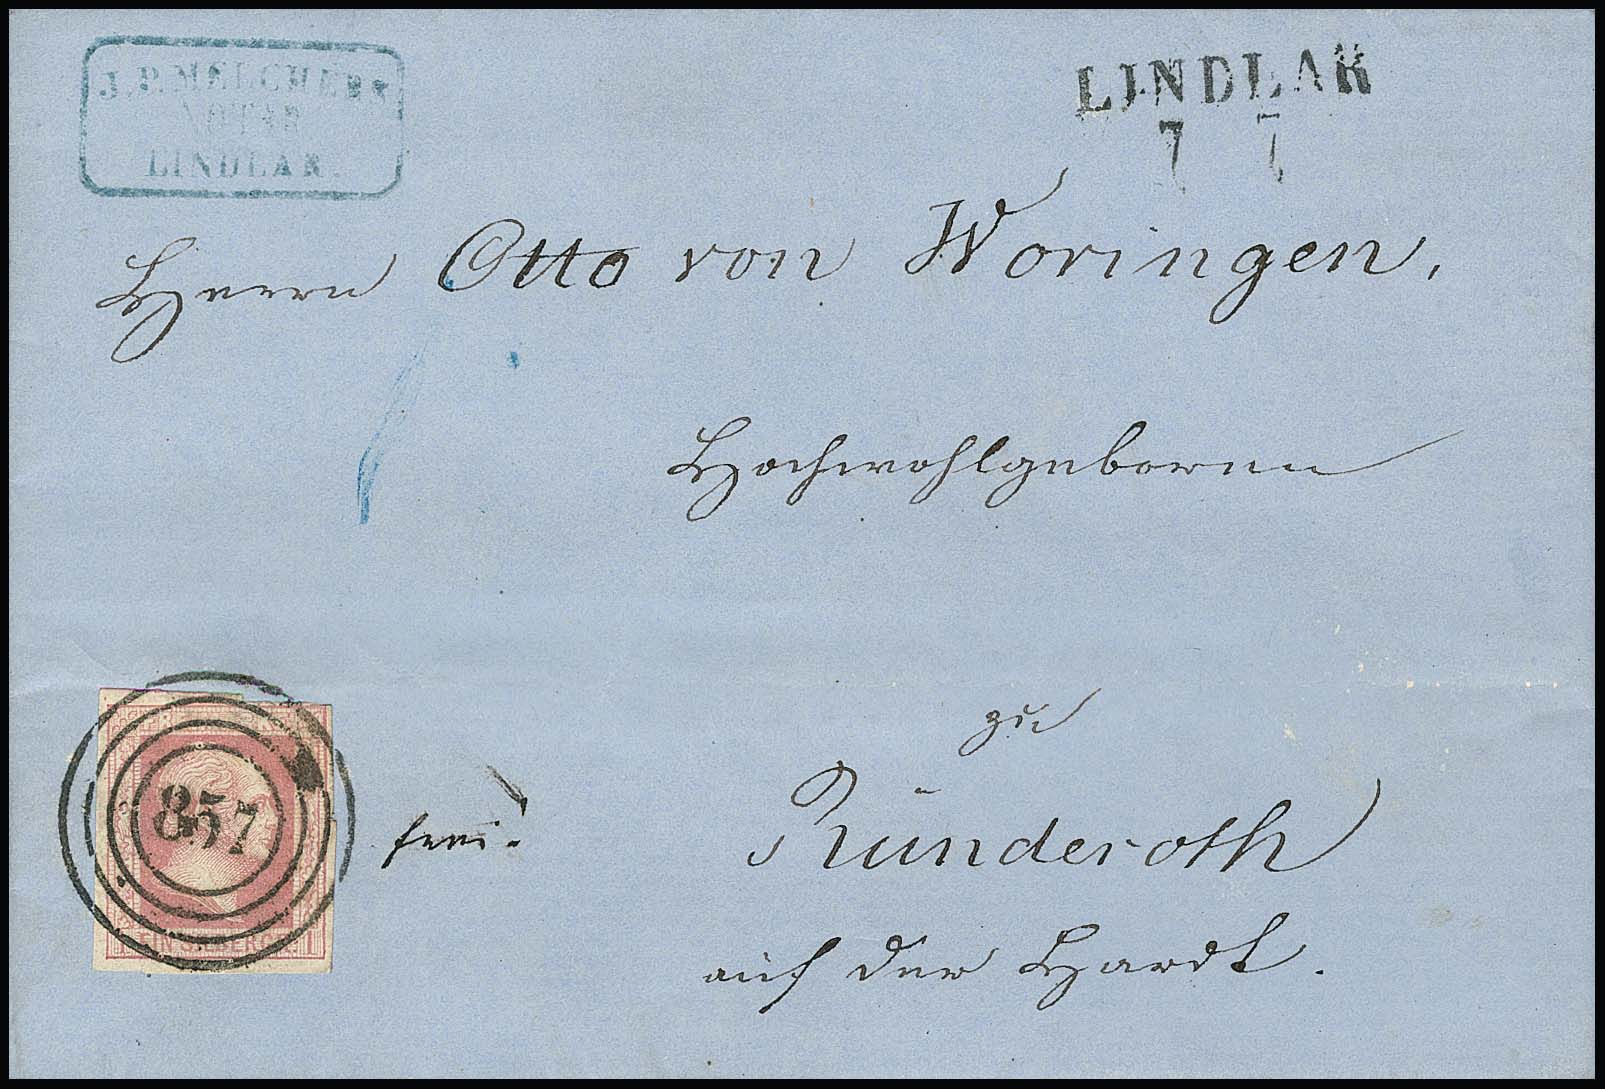 J. P. MELCHERS
NOTAR
LINDLAR.
LINDLAR
7 7
Herrn Otto von Woringen,
Hochwohlgeboren
zu
Ründeroth
auf der Hardt.
frei.
857
EIN SILBERGR. 1